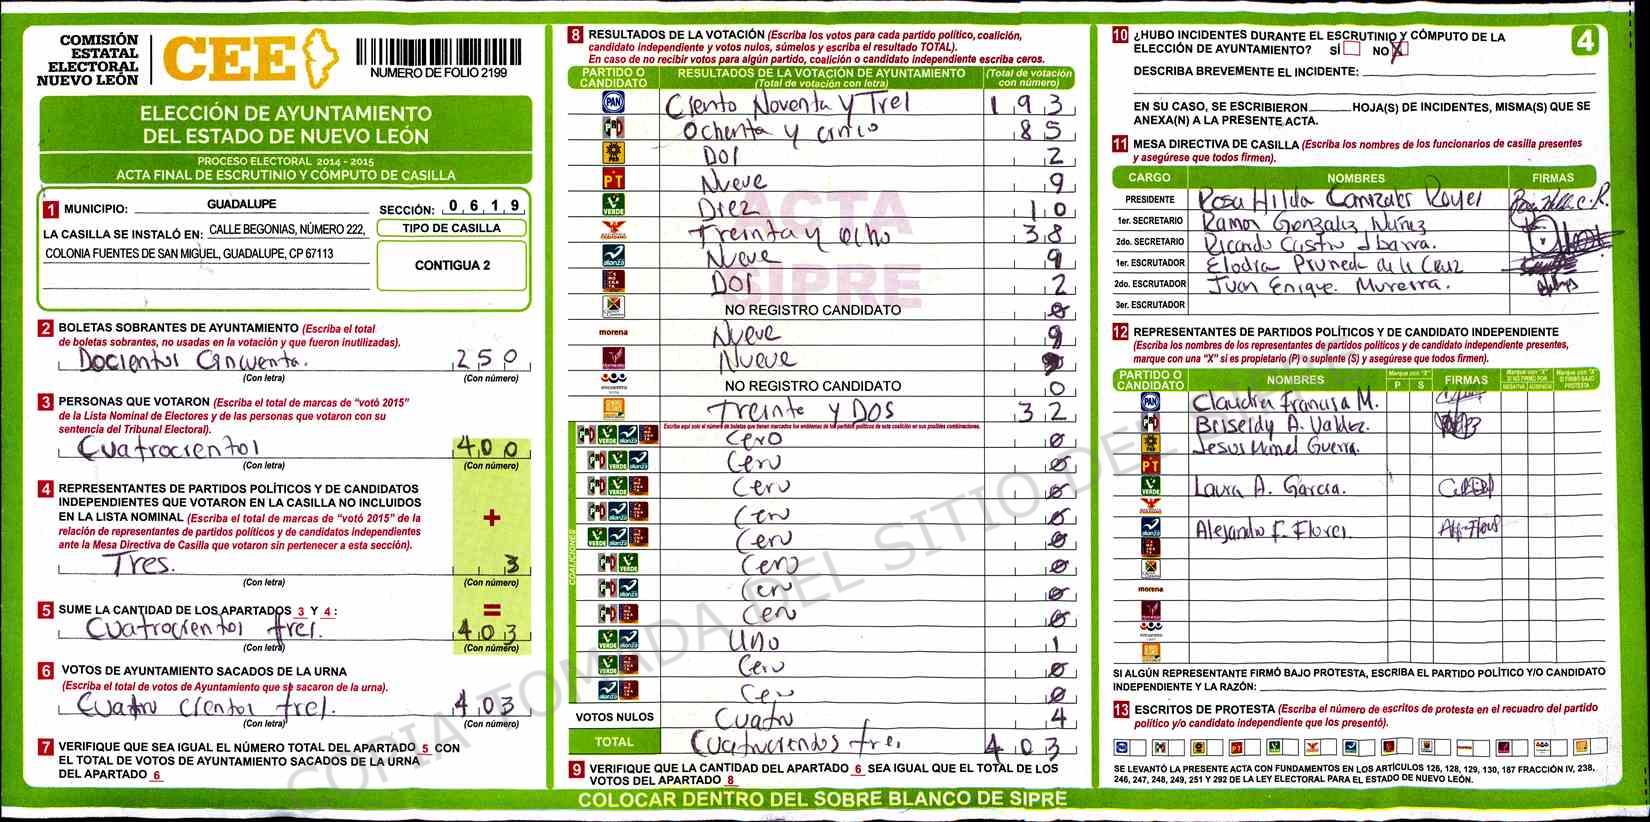 COMISIÓN
ESTATAL
ELECTORAL
NUEVO LEÓN
CEE
NUMERO DE FOLIO 2199
ELECCIÓN DE AYUNTAMIENTO
DEL ESTADO DE NUEVO LEÓN
PROCESO ELECTORAL 2014 - 2015
ACTA FINAL DE ESCRUTINIO Y CÓMPUTO DE CASILLA
1 MUNICIPIO: GUADALUPE SECCIÓN: 0 6 1 9
LA CASILLA SE INSTALÓ EN: CALLE BEGONIAS, NÚMERO 222,
COLONIA FUENTES DE SAN MIGUEL, GUADALUPE, CP 67113
TIPO DE CASILLA
CONTIGUA 2
2 BOLETAS SOBRANTES DE AYUNTAMIENTO (Escriba el total
de boletas sobrantes, no usadas en la votación y que fueron inutilizadas).
Docientos Cincuenta. 250
(Con letra) (Con número)
3 PERSONAS QUE VOTARON (Escriba el total de marcas de "votó 2015"
de la Lista Nominal de Electores y de las personas que votaron con su
sentencia del Tribunal Electoral).
Cuatrocientos 400
(Con letra) (Con número)
4 REPRESENTANTES DE PARTIDOS POLÍTICOS Y DE CANDIDATOS
INDEPENDIENTES QUE VOTARON EN LA CASILLA NO INCLUIDOS
EN LA LISTA NOMINAL (Escriba el total de marcas de "votó 2015" de la
relación de representantes de partidos políticos y de candidatos independientes
ante la Mesa Directiva de Casilla que votaron sin pertenecer a esta sección).
+
Tres. 3
(Con letra) (Con número)
5 SUME LA CANTIDAD DE LOS APARTADOS 3 Y 4 :
=
Cuatrocientos tres. 403
(Con letra) (Con número)
6 VOTOS DE AYUNTAMIENTO SACADOS DE LA URNA
(Escriba el total de votos de Ayuntamiento que se sacaron de la urna).
Cuatro cientos tres. 403
(Con letra) (Con número)
7 VERIFIQUE QUE SEA IGUAL EL NÚMERO TOTAL DEL APARTADO 5 CON
EL TOTAL DE VOTOS DE AYUNTAMIENTO SACADOS DE LA URNA
DEL APARTADO 6
8 RESULTADOS DE LA VOTACIÓN (Escriba los votos para cada partido político, coalición,
candidato independiente y votos nulos, súmelos y escriba el resultado TOTAL).
En caso de no recibir votos para algún partido, coalición o candidato independiente escriba ceros.
PARTIDO O CANDIDATO RESULTADOS DE LA VOTACIÓN DE AYUNTAMIENTO (Total de votación con letra) (Total de votación con número)
PAN Ciento Noventa y Tres 193
PRI Ochenta y cinco 85
PRD Dos 2
PT Nueve 9
VERDE Diez 10
Treinta y ocho 38
alianza Nueve 9
Dos 2
NO REGISTRO CANDIDATO 0
morena Nueve 9
Nueve 9
NO REGISTRO CANDIDATO 0
Treinta y Dos 32
Escriba aquí solo el número de boletas que tienen marcados los emblemas de los partidos políticos de esta coalición en sus posibles combinaciones.
COALICIONES
Cero 0
Cero 0
Cero 0
Cero 0
Cero 0
Cero 0
Cero 0
Cero 0
Uno 1
Cero 0
Cero 0
VOTOS NULOS Cuatro 4
TOTAL Cuatrocientos tres 403
9 VERIFIQUE QUE LA CANTIDAD DEL APARTADO 6 SEA IGUAL QUE EL TOTAL DE LOS
VOTOS DEL APARTADO 8
COLOCAR DENTRO DEL SOBRE BLANCO DE SIPRE
ACTA
SIPRE
COPIA TOMADA DEL SITIO DEL SIPRE
4
10 ¿HUBO INCIDENTES DURANTE EL ESCRUTINIO Y CÓMPUTO DE LA
ELECCIÓN DE AYUNTAMIENTO? SÍ NO X
DESCRIBA BREVEMENTE EL INCIDENTE:
EN SU CASO, SE ESCRIBIERON HOJA(S) DE INCIDENTES, MISMA(S) QUE SE
ANEXA(N) A LA PRESENTE ACTA.
11 MESA DIRECTIVA DE CASILLA (Escriba los nombres de los funcionarios de casilla presentes
y asegúrese que todos firmen).
CARGO NOMBRES FIRMAS
PRESIDENTE Rosa Hilda Canizales Reyes
1er. SECRETARIO Ramon Gonzalez Nuñez
2do. SECRETARIO Ricardo Castro Ibarra.
1er. ESCRUTADOR Elodia Pruneda de la Cruz
2do. ESCRUTADOR Juan Enrique.
3er. ESCRUTADOR
12 REPRESENTANTES DE PARTIDOS POLÍTICOS Y DE CANDIDATO INDEPENDIENTE
(Escriba los nombres de los representantes de partidos políticos y de candidato independiente presentes,
marque con una "X" si es propietario (P) o suplente (S) y asegúrese que todos firmen).
PARTIDO O CANDIDATO NOMBRES Marque con "X" P S FIRMAS Marque con "X" SI NO FIRMÓ POR NEGATIVA AUSENCIA Marque con "X" SI FIRMÓ BAJO PROTESTA
PAN Claudia Francisca M.
PRI Briseidy A. Valdez.
PRD Jesus Guerra.
PT
VERDE Laura A. Garcia.
alianza Alejandro F. Flores.
morena
SI ALGÚN REPRESENTANTE FIRMÓ BAJO PROTESTA, ESCRIBA EL PARTIDO POLÍTICO Y/O CANDIDATO
INDEPENDIENTE Y LA RAZÓN:
13 ESCRITOS DE PROTESTA (Escriba el número de escritos de protesta en el recuadro del partido
político y/o candidato independiente que los presentó).
SE LEVANTÓ LA PRESENTE ACTA CON FUNDAMENTOS EN LOS ARTÍCULOS 126, 128, 129, 130, 187 FRACCIÓN IV, 238,
246, 247, 248, 249, 251 Y 292 DE LA LEY ELECTORAL PARA EL ESTADO DE NUEVO LEÓN.